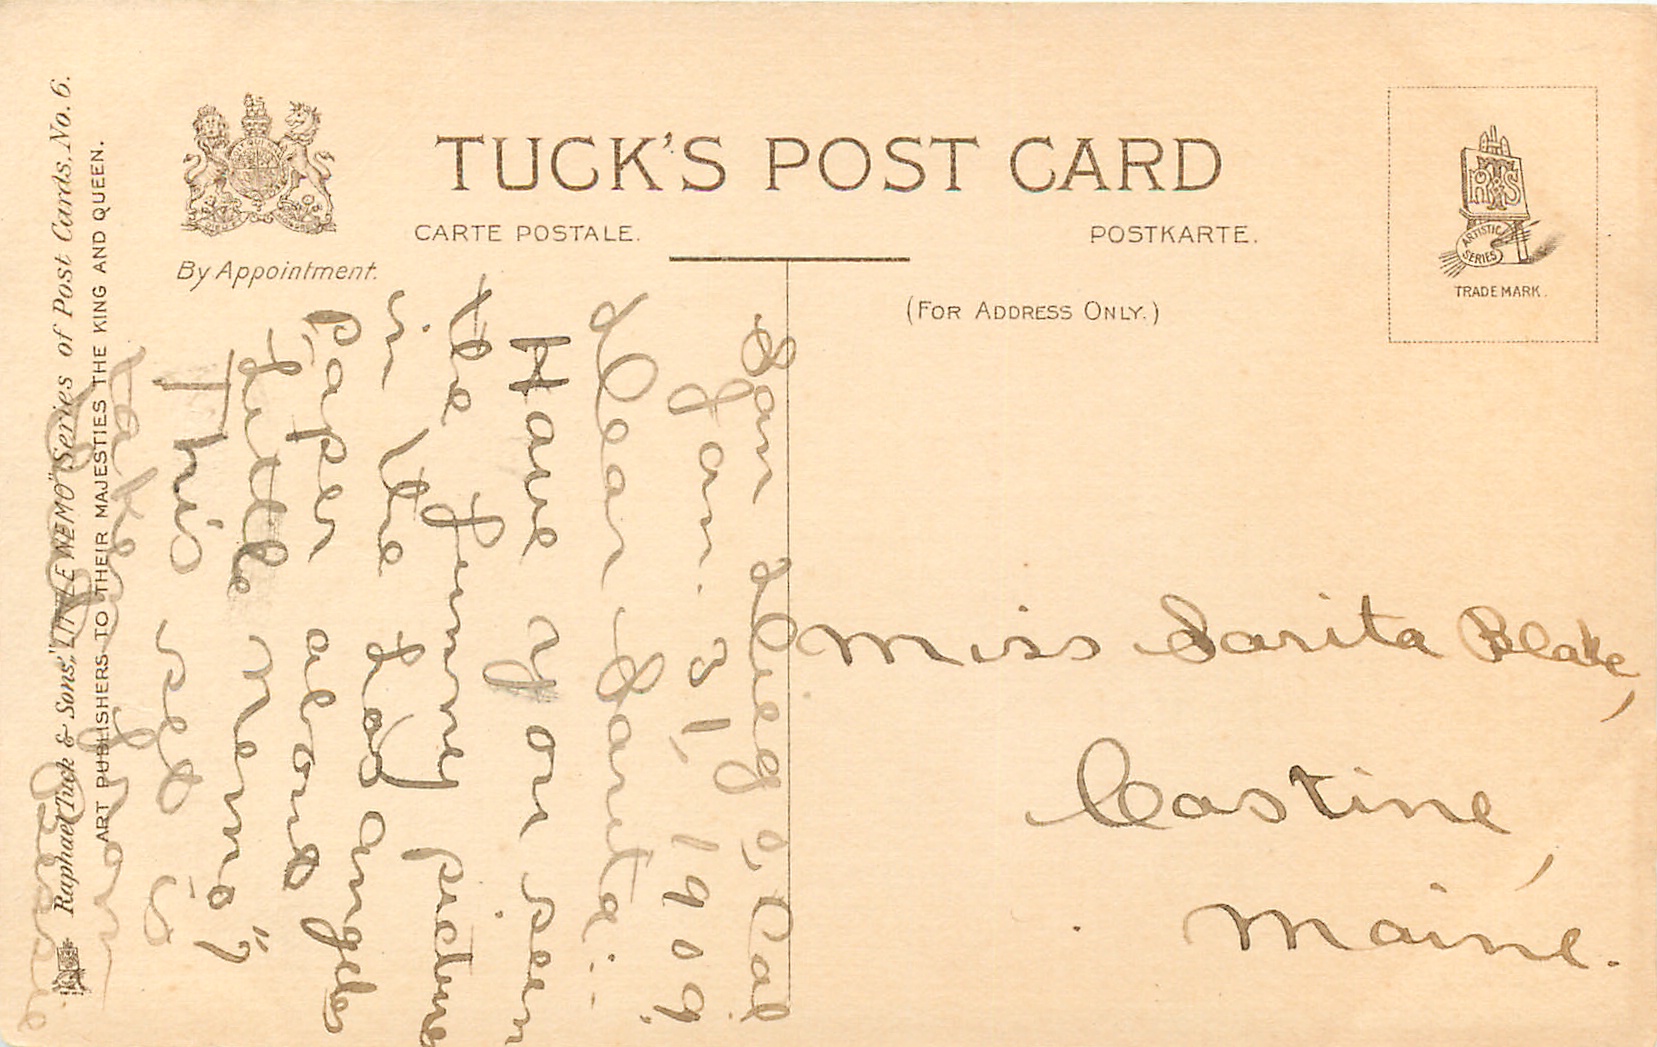 TUCK'S POST CARD
CARTE POSTALE.
POSTKARTE.
By Appointment.
(FOR ADDRESS ONLY.)
RTS
ARTISTIC SERIES
TRADE MARK.
Raphael Tuck & Sons' "LITTLE NEMO" Series of Post Cards, No. 6.
ART PUBLISHERS TO THEIR MAJESTIES THE KING AND QUEEN.
San Diego, Cal
Jan. 31, 1909.
Dear Sarita:-
Have you seen
the funny pictures
in the Los Angeles
paper about
"Little Nemo"?
This set is
taken from
Bessie
Miss Sarita Blake,
Castine,
Maine.